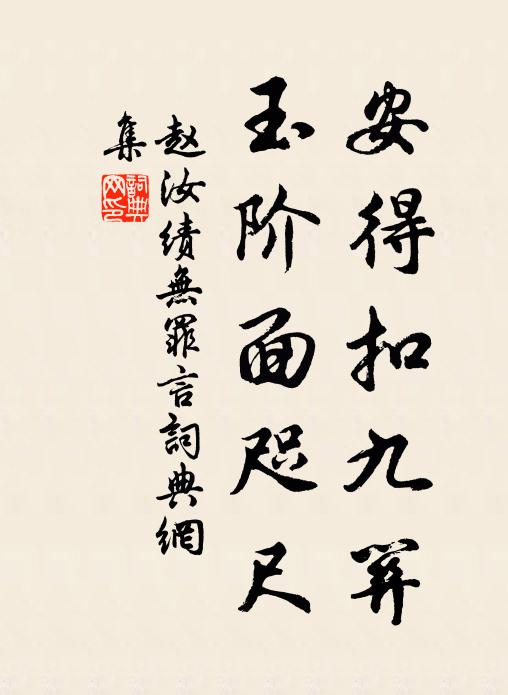 安得扣九關
玉阶面咫尺
赵汝绩無罪言詞典網
集
詞典
网印